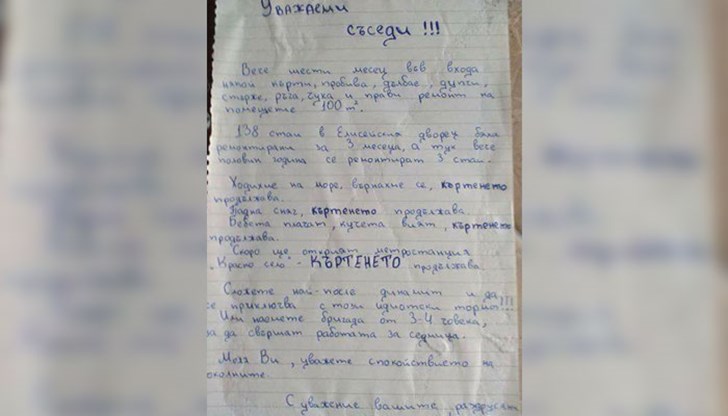 Уважаеми
съседи !!!
Вече шести месец във входа
някой кърти, пробива, дълбае, дупчи,
стърже, ръга, чука и прави ремонт на
помещете 100 m².
138 стаи в Елисейския дворец бяха
ремонтирани за 3 месеца, а тук вече
половин година се ремонтират 3 стаи.
Ходихме на море, върнахме се, къртенето
продължава.
Падна сняг, къртенето продължава.
Бебета плачат, кучета вият, къртенето
продължава.
Скоро ще открият метростанция
"Красно село" - КЪРТЕНЕТО продължава
Сложете най-после динамит и да
се приключва с този идиотски тормоз!!!
Или наемете бригада от 3-4 човека,
за да свършат работата за седмица.
Моля Ви, уважете спокойствието на
околните.
С уважение вашите,